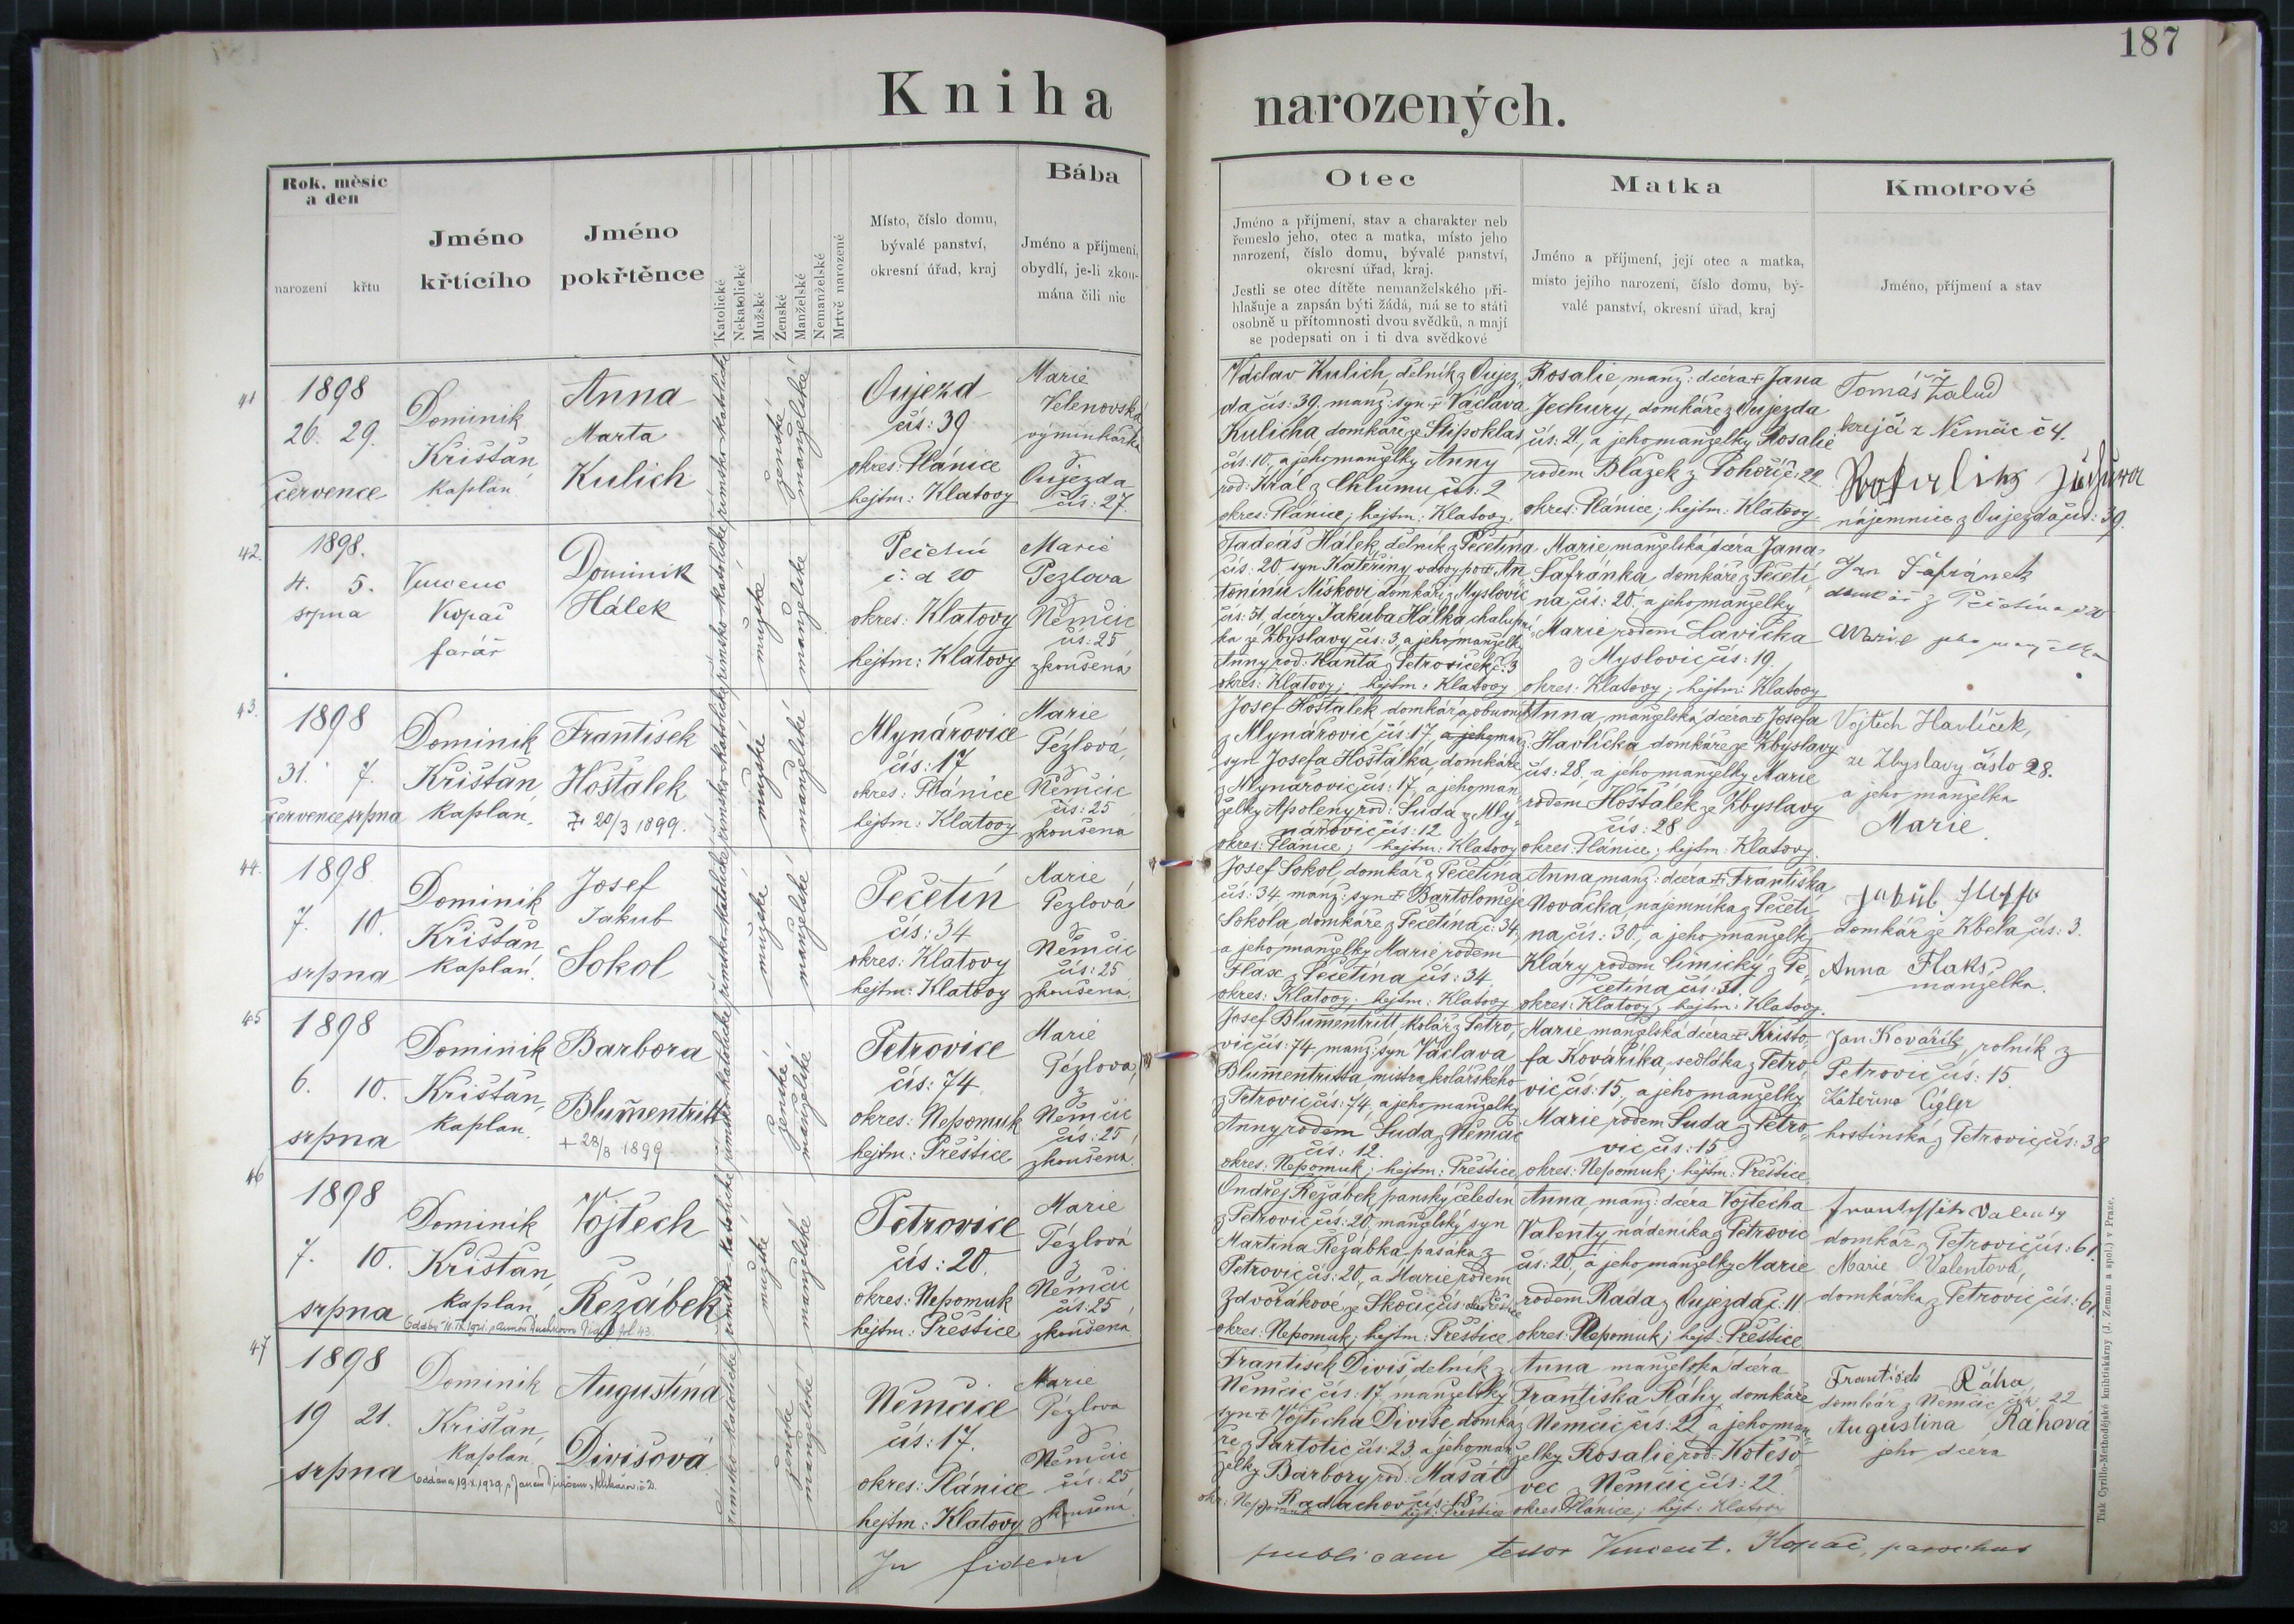 187
Kniha narozených.
Rok, měsíc
a den
narození křtu
Jméno
křtícího
Jméno
pokřtěnce
Katolické
Nekatolické
Mužské
Ženské
Manželské
Nemanželské
Mrtvě narozené
Místo, číslo domu,
bývalé panství,
okresní úřad, kraj
Bába
Jméno a příjmení,
obydlí, je-li zkou-
mána čili nic
Otec
Jméno a příjmení, stav a charakter neb
řemeslo jeho, otec a matka, místo jeho
narození, číslo domu, bývalé panství,
okresní úřad, kraj.
Jestli se otec dítěte nemanželského při-
hlašuje a zapsán býti žádá, má se to státi
osobně u přítomnosti dvou svědků, a mají
se podepsati on i ti dva svědkové
Matka
Jméno a příjmení, její otec a matka,
místo jejího narození, číslo domu, bý-
valé panství, okresní úřad, kraj
Kmotrové
Jméno, příjmení a stav
41
1898
26. 29.
července
Dominik
Křišťan
kaplan
Anna
Marta
Kulich
římsko-katolické
ženské
manželské
Oujezd
čís: 39
okres: Plánice
hejtm: Klatovy
Marie
Velenovská
výminkářka
z
Oujezda
čís: 27.
Václav Kulich, dělník z Oujez-
da čís: 39. manž: syn + Václava
Kulicha domkáře ze Štipoklas
čís: 10, a jeho manželky Anny
rod: Král z Chlumu čís: 2
okres: Plánice; hejtm: Klatovy.
Rosalie, manž: dcera + Jana
Jechury, domkáře z Oujezda
čís: 21, a jeho manželky Rosalie
rodem Blažek z Pohoří č: 22
okres: Plánice; hejtm: Klatovy.
Tomáš Žalud
krejčí z Němčic č 4.
nájemnice z Oujezda čís: 39.
42.
1898.
4. 5.
srpna
Vincenc
Kopač
farář
Dominik
Hálek
římsko-katolické
mužské
manželské
Pečetín
č: d 20
okres: Klatovy
hejtm: Klatovy
Marie
Pezlova
z
Němčic
čís: 25
zkoušená
Tadeáš Hálek, dělník z Pečetína
čís: 20 syn Kateřiny vdovy po + An-
tonínu Míškovi domkáři z Myslovic
čís: 51, dcery Jakuba Hálka chalupní-
ka ze Zbyslavy čís: 3, a jeho manželky
Anny rod: Kanta z Petroviček č: 3
okres: Klatovy; hejtm: Klatovy
Marie, manželská dcera Jana
Šafránka, domkáře z Pečetí-
na čís: 20, a jeho manželky
Marie rodem Lavička
z Myslovic čís: 19.
okres: Klatovy; hejtm: Klatovy
Jan Šafránek
domkář z Pečetína č 20
Marie jeho manželka
43.
1898
31. 7.
července srpna
Dominik
Křišťan
kaplan.
František
Hošťálek
+ 20/3 1899.
římsko-katolické
mužské
manželské
Mlynářovice
čís: 17
okres: Plánice
hejtm: Klatovy
Marie
Pézlová,
z
Němčic
čís: 25
zkoušená
Josef Hošťálek domkář a obuvník
z Mlynářovic čís: 17, a jeho manž:
syn Josefa Hošťálka, domkáře
z Mlynářovic čís: 17, a jeho man-
želky Apoleny rod: Suda z Mly-
nářovic čís: 12
okres: Plánice; hejtm: Klatovy
Anna, manželská dcera + Josefa
Havlíčka domkáře ze Zbyslavy
čís: 28, a jeho manželky Marie
rodem Hošťálek ze Zbyslavy
čís: 28
okres: Plánice; hejtm: Klatovy.
Vojtěch Havlíček,
ze Zbyslavy číslo 28.
a jeho manželka
Marie.
44.
1898
7. 10.
srpna
Dominik
Křišťan
kaplan.
Josef
Jakub
Sokol
římsko-katolické
mužské
manželské
Pečetín
čís: 34
okres: Klatovy
hejtm: Klatovy
Marie
Pezlová
z
Němčic
čís: 25
zkoušena.
Josef Sokol, domkář z Pečetína
čís: 34, manž: syn + Bartoloměje
Sokola, domkáře z Pečetína č: 34,
a jeho manželky Marie rodem
Flax z Pečetína čís: 34
okres: Klatovy. hejtm: Klatovy
Anna, manž: dcera + Františka
Nováčka, nájemníka z Pečetí-
na čís: 30, a jeho manželky
Kláry rodem Cimický z Pe-
četína čís: 31.
okres: Klatovy; hejtm: Klatovy.
domkář ze Kbela čís: 3.
Anna Flaks,
manželka.
45
1898
6. 10.
srpna
Dominik
Křišťan,
kaplan.
Barbora
Blumentritt
+ 28/3 1899
římsko-katolické
ženské
manželské
Petrovice
čís: 74
okres: Nepomuk
hejtm: Přeštice
Marie
Pézlová,
z
Němčic
čís: 25
zkoušená.
Josef Blumentritt, kolář z Petro-
vic čís: 74, manž: syn Václava
Blumentritta, mistra kolářského
z Petrovic čís: 74, a jeho manželky
Anny rodem Suda z Němčic
čís: 12
okres: Nepomuk; hejtm: Přeštice
Marie, manželská dcera + Kristo-
fa Kováříka, sedláka z Petro-
vic čís: 15, a jeho manželky
Marie rodem Suda z Petro-
vic čís: 15
okres: Nepomuk; hejtm: Přeštice.
Jan Kovářík, rolník z
Petrovic čís: 15.
Kateřina Cigler
hostinská z Petrovic čís: 38
46
1898
7. 10.
srpna
Dominik
Křišťan,
kaplan,
Vojtěch
Řezábek
římsko-katolické
mužské
manželské
Petrovice
čís: 20.
okres: Nepomuk
hejtm: Přeštice
Marie
Pézlová
z
Němčic
čís: 25
zkoušená
Ondřej Řezábek, panský čeledín
z Petrovic čís: 20, manželský syn
Martina Řezábka, pasáka z
Petrovic čís: 20, a Marie rodem
Zdvořákové ze Skočic čís:
okres: Nepomuk; hejtm: Přeštice
Anna, manž: dcera Vojtěcha
Valenty, nádeníka z Petrovic
čís: 20, a jeho manželky Marie
rodem Rada z Oujezda č: 11
okres: Nepomuk; hejt: Přeštice
Valenty
domkář z Petrovic čís: 61
Marie Valentová,
domkářka z Petrovic čís: 61.
47
1898
19 21.
srpna
Dominik
Křišťan,
kaplan.
Augustina
Divišová
římsko-katolické
ženské
manželské
Němčice
čís: 17.
okres: Plánice
hejtm: Klatovy
Marie
Pézlová
z
Němčic
čís: 25
zkoušená
František Diviš dělník z
Němčic čís: 17, manželský
syn + Vojtěcha Diviše, domká-
ře z Partotic čís: 23 a jeho man-
želky Barbory rod: Mašát
z Radachov čís: 18
okr: Nepomuk hejt: Přeštice
Anna manželská dcera
Františka Ráhy, domkáře
z Němčic čís: 22, a jeho man-
želky Rosalie rod: Kotěšo-
vec z Němčic čís: 22.
okres Plánice; hejt: Klatovy
František Ráha
domkář z Němčic čís: 22
Augustina Ráhová
jeho dcera
In fidem
publicam testor Vincent. Kopač, parochus
Tisk Cyrillo-Methodějské knihtiskárny (J. Zeman a spol.) v Praze.